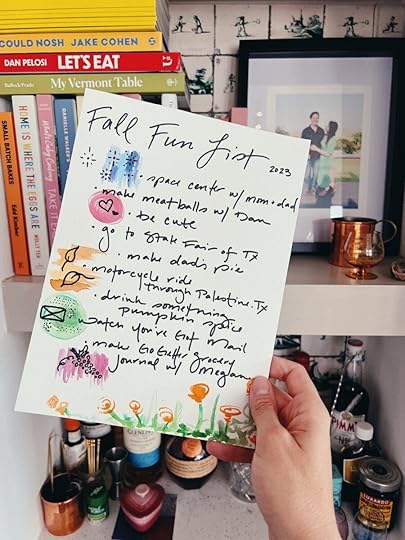 COULD NOSH JAKE COHEN
DAN PELOSI LET'S EAT
My Vermont Table
SMALL BATCH BAKES
Edd Kimber
HOME IS WHERE THE EGGS ARE
MOLLY YEH
What's Gaby Cooking
TAKE IT EASY
DANIELLE WALKER'S
Fall Fun List
2023
· space center w/ mom + dad
· make meatballs w/ Dan
· be cute
· go to State Fair of TX
· make dad's pie
· motorcycle ride
through Palestine, TX
· drink something
pumpkin spice
· watch You've Got Mail
· make Go Getter grocery
journal w/ Megan
PIMM'